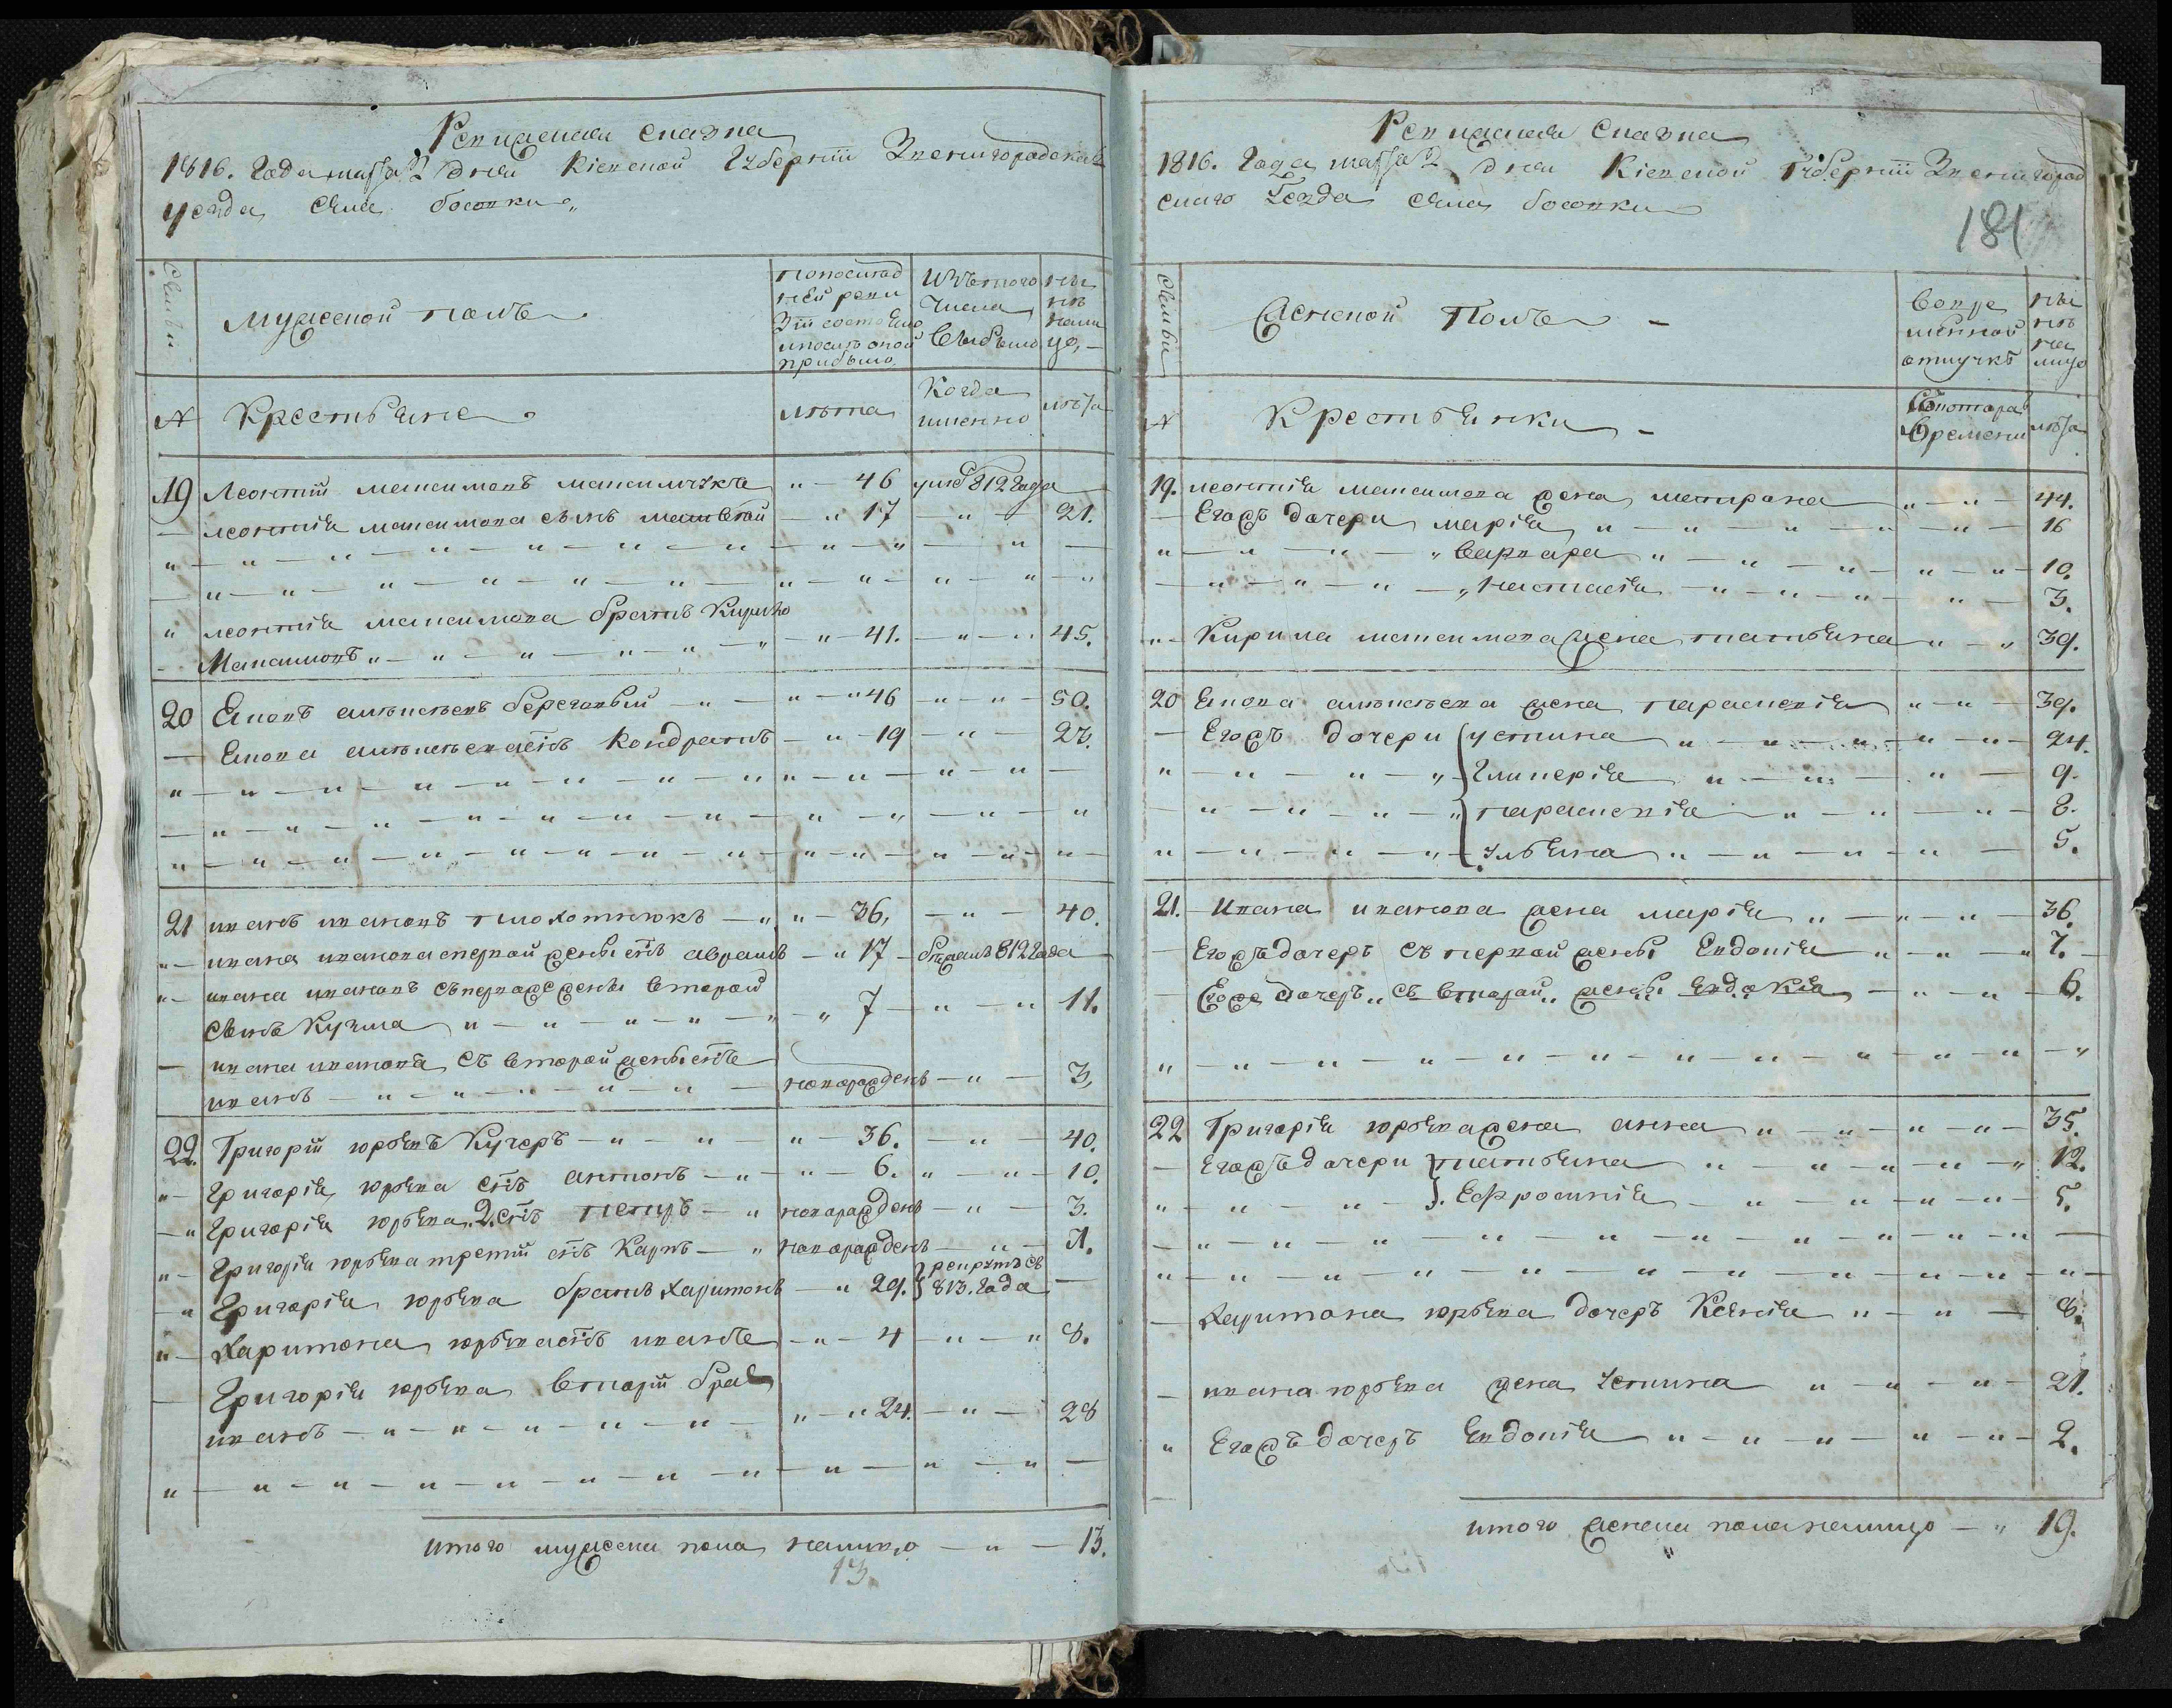 Ревижская сказка
1816. Года марта 2 дня Кіевской Губерніи Звенигородскаго
уезда села босовки
Семьи
мужеской полъ
попослед
ней реви
зіи состояло
ипосле оной
прибыло
Изъ того
числа
выбыло
ны
не
нали
цо,
№
Крестьяне
лѣта
Когда
именно
лѣта
19 леонтій максимовъ максимчукъ " — 46 умре 812 Года
— леонтія максимова сынъ матвей — " 17 — " — 21.
" леонтія максимова братъ Кирило
Максимовъ " — " — 41. — " — 45.
20 Яковъ алексеевъ береговый — " — " — 46 — " — 50.
— Якова алексеева сїнъ Кондратъ — " — 19 — " — 23.
21 иванъ ивановъ плохотнюкъ — " " — 36, — " — 40.
" — ивана иванова сперой жены сїнъ аврамъ — " 17 — бежалъ 812 Года
" — ивана ивановъ съ второй
сынъ Кузма " — " — 7 — " — 11.
— ивана иванова съ второй жены сїнъ
иванъ — " — новорожденъ — " — 3,
22. Григорій юрьевъ Кучеръ — " — " — 36. — " — 40.
" — Григорія юрьева сїнъ антонъ — " — " — 6. " — " — 10.
— " Григорія юрьева 2. сїнъ петръ — " новорожденъ — " — 3.
" — Григорія юрьева третій сїнъ Карпъ — " новорожденъ — " — 1.
— " Григорія юрьева братъ Харитонъ — " 29. рекрутъ съ
813. Года —
" — Харитона юрьева сїнъ иванъ — " — 4 — " — " 8.
— Григорія юрьева вторій братъ
иванъ — " — " — " 24. — " — 28
итого мужеска пола налицо — " — 13.
13
Ревижская Сказка
1816. Года марта 2 дня Кіевской Губерніи Звенигород
скаго Уезда села босовки
181
Семьи
Женской Полъ —
вовре
менной
отлучкѣ
ны
не
на
лицо
№
Крестьянки —
Скоторого
Времени
лѣта
19. леонтія максимова жена матрона " — " — 44.
— Егожъ дочери марія " — " — " — 16
" — " — " варвара " — " — " — 10.
— " — " — " настасія — " — " — 3.
" — Кирила максимова жена татьяна " — " 39.
20 Якова алексеева жена параскевія " — " — 39.
— Егожъ дочери устина " — " — " — 24.
" — " — " Гликерія " — " — " — 9.
— " — " — " параскевія " — " — " — 8.
" — " — " ульяна " — " — " — 5.
21. — Ивана иванова жена марія " — " — " — 36.
— Егожъ дочеръ съ первой жены Евдокія " — " — " 7.
— Егоже дочеръ съ второй жены Евдокія — " — " — 6.
22 Григорія юрьева жена анна " — " — " — 35.
— Егожъ дочери татьяна " — " — " 12.
" — " — " Ефросинія — " — " — " — 5.
— Харитона юрьева дочеръ Ксенія " — " — 8.
— ивана юрьева жена Устина " — " — " — 21.
" Егожъ дочеръ Евдокія " — " — " — " — 2.
итого женска пола налицо — " 19.